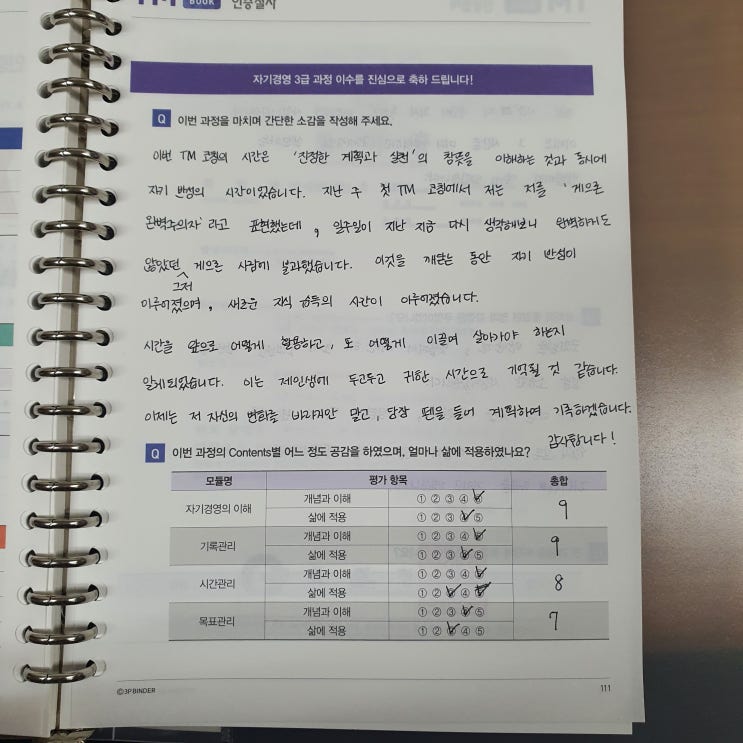 BOOK 인증심사
자기경영 3급 과정 이수를 진심으로 축하 드립니다!
Q 이번 과정을 마치며 간단한 소감을 작성해 주세요.
이번 TM 코칭의 시간은 '진정한 계획과 실천'의 참뜻을 이해하는 것과 동시에
자기 반성의 시간이었습니다. 지난 주 첫 TM 코칭에서 저는 저를 '게으른
완벽주의자' 라고 표현했는데, 일주일이 지난 지금 다시 생각해보니 완벽하지도
않았던 그저 게으른 사람에 불과했습니다. 이것을 깨닫는 동안 자기 반성이
이루어졌으며, 새로운 지식 습득의 시간이 이루어졌습니다.
시간을 앞으로 어떻게 활용하고, 또 어떻게 이끌며 살아가야 하는지
알게되었습니다. 이는 제인생에 두고두고 귀한 시간으로 기억될 것 같습니다.
이제는 저 자신의 변화를 바라지만 말고, 당장 펜을 들어 계획하여 기록하겠습니다.
감사합니다!
Q 이번 과정의 Contents별 어느 정도 공감을 하였으며, 얼마나 삶에 적용하였나요?
모듈명 평가 항목 총합
자기경영의 이해 개념과 이해 ① ② ③ ④ ⑤ 9
삶에 적용 ① ② ③ ④ ⑤
기록관리 개념과 이해 ① ② ③ ④ ⑤ 9
삶에 적용 ① ② ③ ④ ⑤
시간관리 개념과 이해 ① ② ③ ④ ⑤ 8
삶에 적용 ① ② ③ ④ ⑤
목표관리 개념과 이해 ① ② ③ ④ ⑤ 7
삶에 적용 ① ② ③ ④ ⑤
©3P BINDER 111